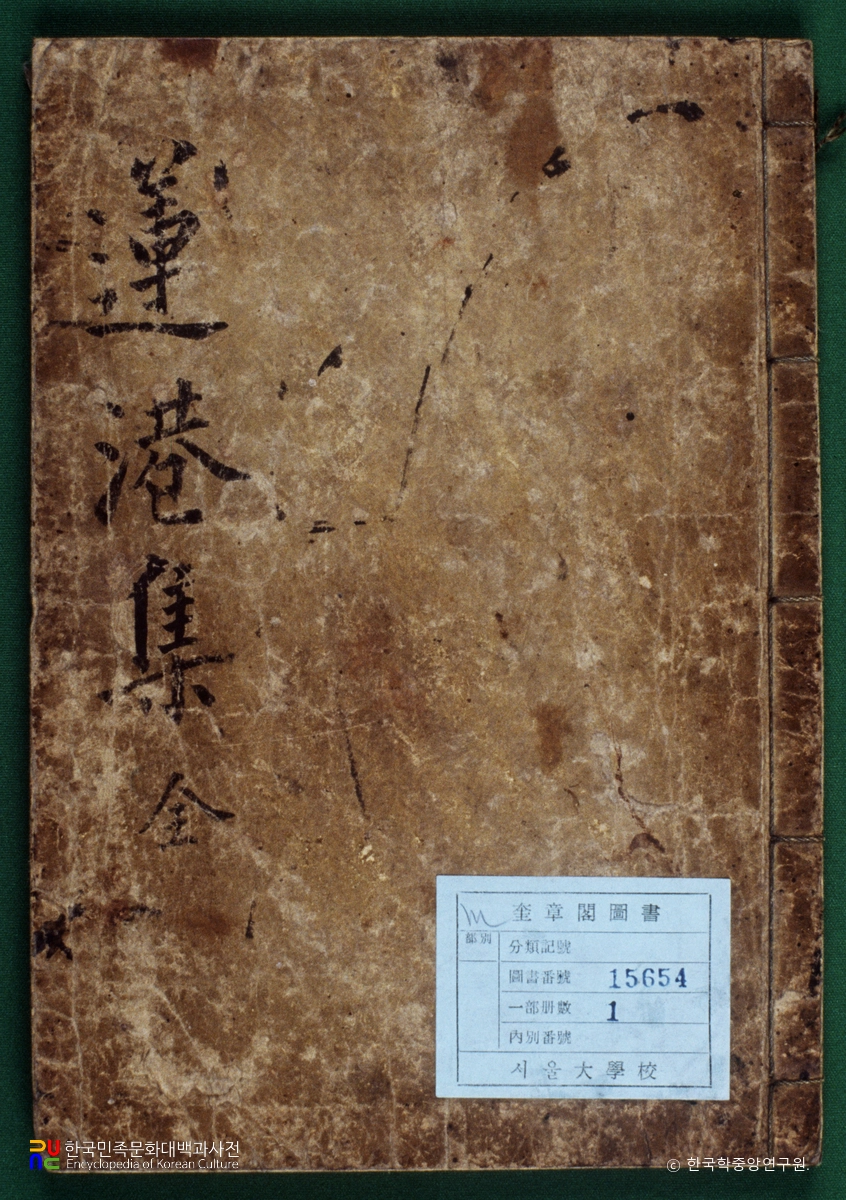 蓮港集 全
奎章閣圖書
部別
分類記號
圖書番號 15654
一部册數 1
內別番號
서울大學校
한국민족문화대백과사전
Encyclopedia of Korean Culture
© 한국학중앙연구원.